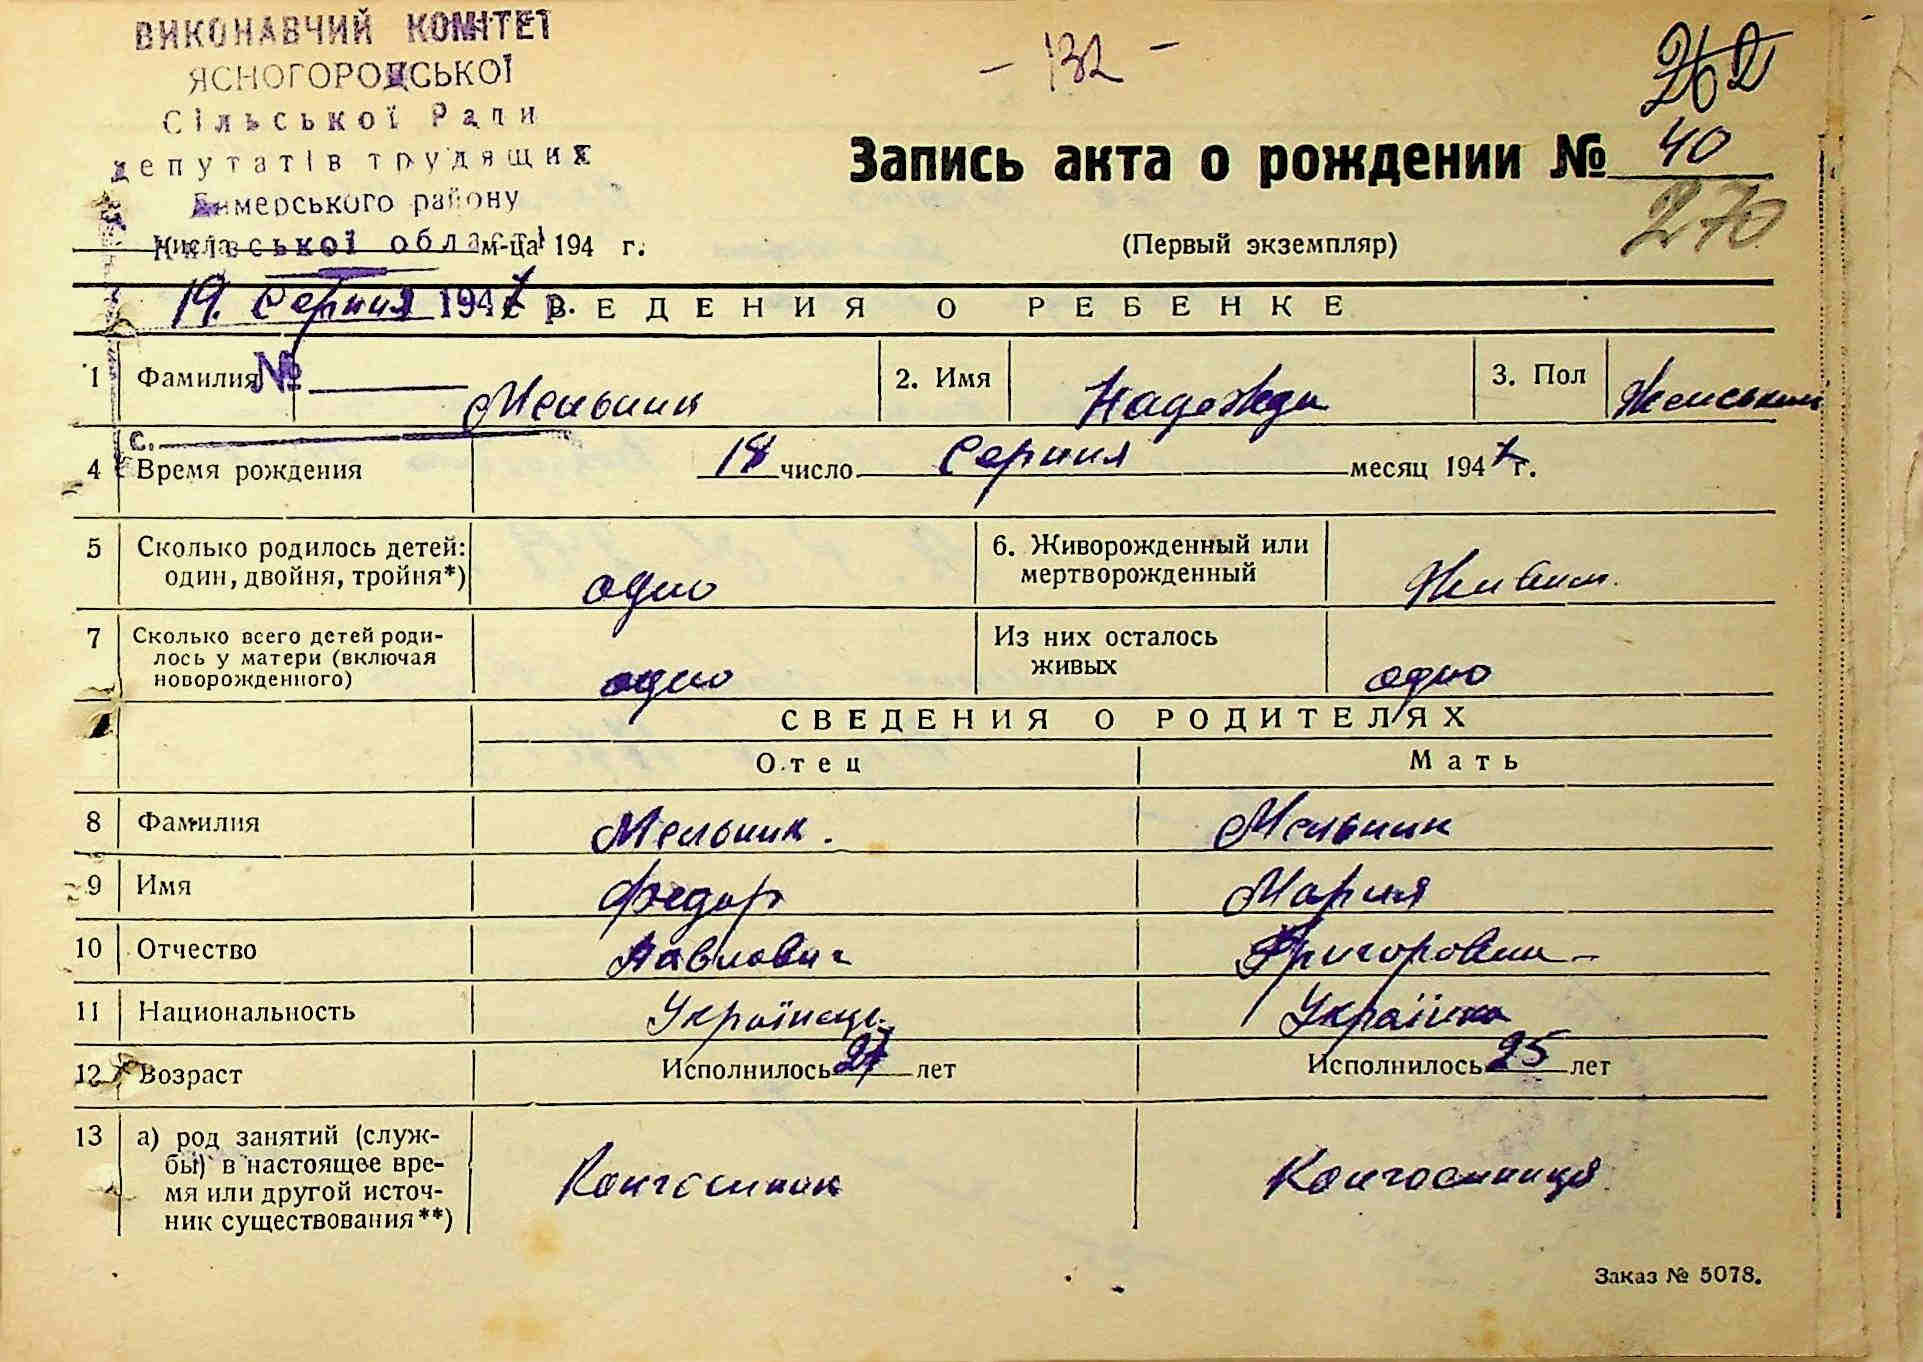 ВИКОНАВЧИЙ КОМІТЕТ
ЯСНОГОРОДСЬКОЇ
Сільської Ради
депутатів трудящих
Димерського району
Київської області
- 132 -
262
Запись акта о рождении № 40
270
числа м-ца 194 г.
(Первый экземпляр)
19. Серпня 1947 р.
СВЕДЕНИЯ О РЕБЕНКЕ
№
1 Фамилия Мельник 2. Имя Надежда 3. Пол Женський
с.
4 Время рождения 18 число Серпня месяц 1947 г.
5 Сколько родилось детей: один, двойня, тройня*) одно 6. Живорожденный или мертворожденный Живим.
7 Сколько всего детей роди-
лось у матери (включая
новорожденного) одно Из них осталось живых одно
СВЕДЕНИЯ О РОДИТЕЛЯХ
Отец Мать
8 Фамилия Мельник. Мельник
9 Имя Федор Мария
10 Отчество Павлович Григоровна
11 Национальность Українець Українка
12 Возраст Исполнилось 27 лет Исполнилось 25 лет
13 а) род занятий (служ-
бы) в настоящее вре-
мя или другой источ-
ник существования**) Колгоспник Колгоспниця
Заказ № 5078.